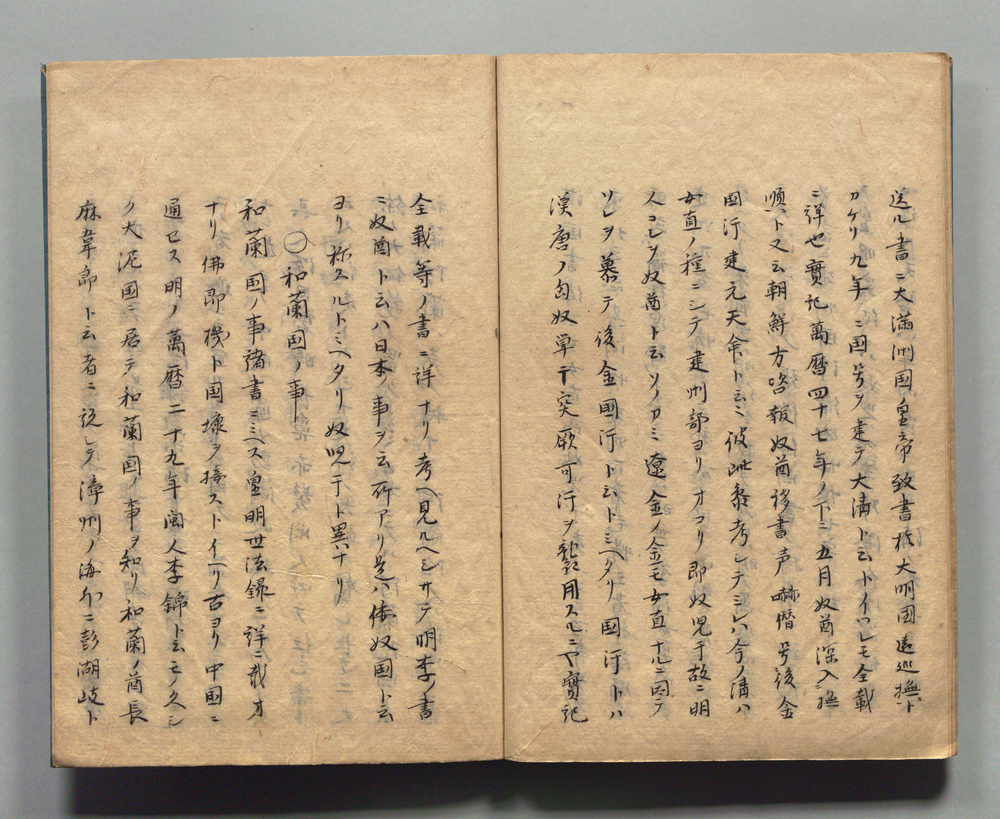 送ル書ニ大満洲国皇帝致書於大明国遠巡撫ト
カケリ九年ニ国号ヲ建テ大清ト云トイヘレモ全載
ニ詳也實記萬暦四十七年ノ下ニ五月奴酋深入撫
順ト又云朝鮮方咨報奴酋移書声嚇僣号後金
国汗建元天命ト云ミ彼此参考シテミレハ今ノ清ハ
女直ノ種ニシテ建州部ヨリオコリ即奴児干故ニ明
人コレヲ奴酋ト云ソノカミ遼金ノ金モ女直ナルニ因テ
ソレヲ慕テ後金国汗ト云トミヘタリ国汗トハ
漢唐ノ匈奴単于突厥可汗ヲ襲用スルニヤ實記
全載等ノ書ニ詳ナリ考ヘ見ルヘシサテ明季ノ書
ニ奴酋ト云ハ日本ノ事ヲ云所アリ是ハ倭奴国ト云
ヨリ称スルトミヘタリ奴児干ト異ナリ
㊀和蘭国ノ事
和蘭国ノ事諸書ニミヘス皇明世法録ニ詳ニ載オ
ナリ佛郎機ト国壌ヲ接ストイヘリ古ヨリ中国ニ
通セス明ノ萬暦二十九年閩人李錦ト云モノ久シ
ク大泥国ニ居テ和蘭国ノ事ヲ知リ和蘭ノ酋長
麻韋郎ト云者ニ説シテ漳州ノ海外ニ彭湖岐ト